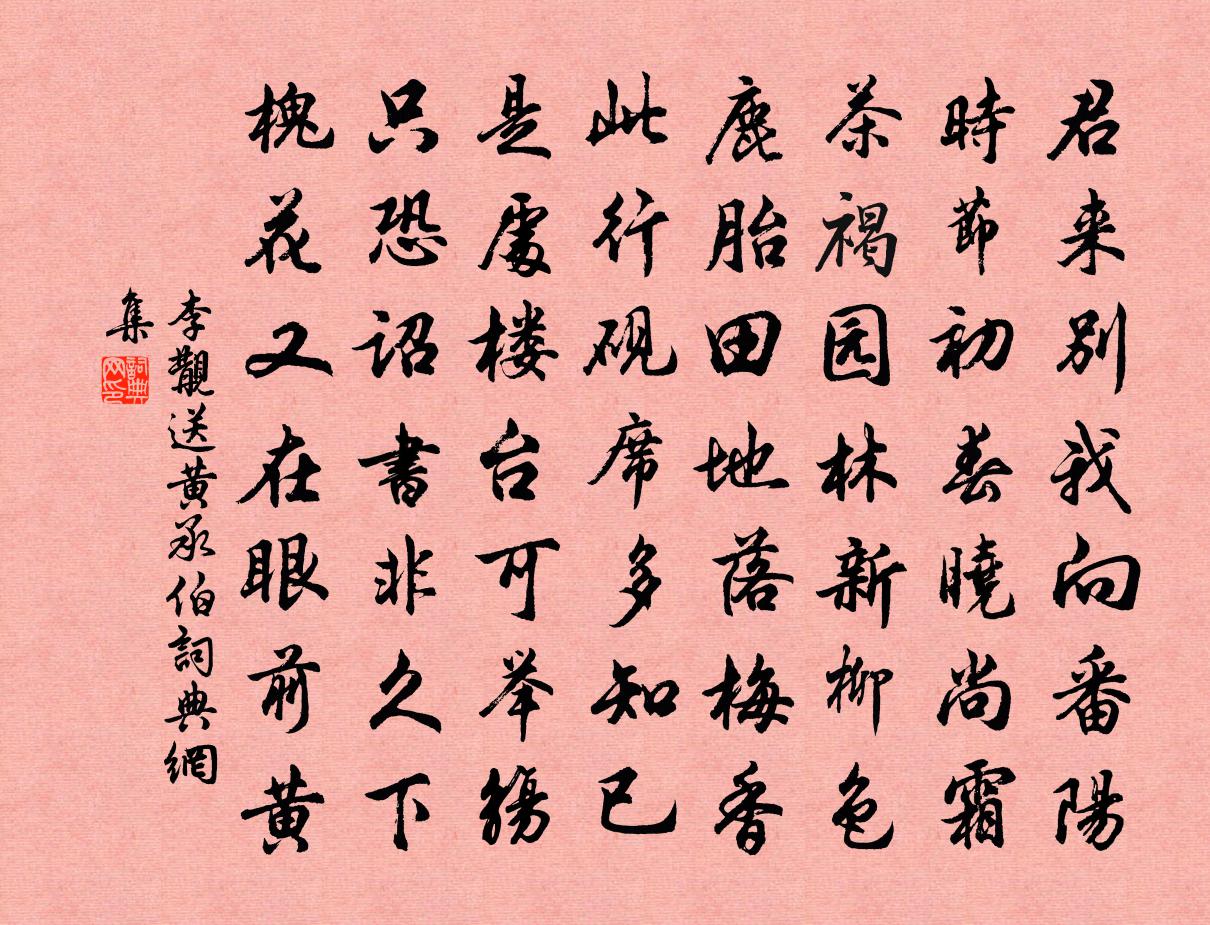 君来别我向番陽
時節初春曉尚霜
茶褐园林新柳色
鹿胎田地落梅香
此行硯席多知已
是處楼台可举觴
只恐詔書非久下
槐花又在眼前黄
李覯送黄承伯詞典網
集
詞典网印